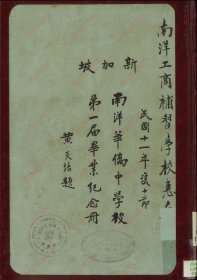 南洋工商補習學校惠存
民國十一年雙十節
新加坡
南洋華僑中學校
第一屆畢業紀念冊
黃天培題